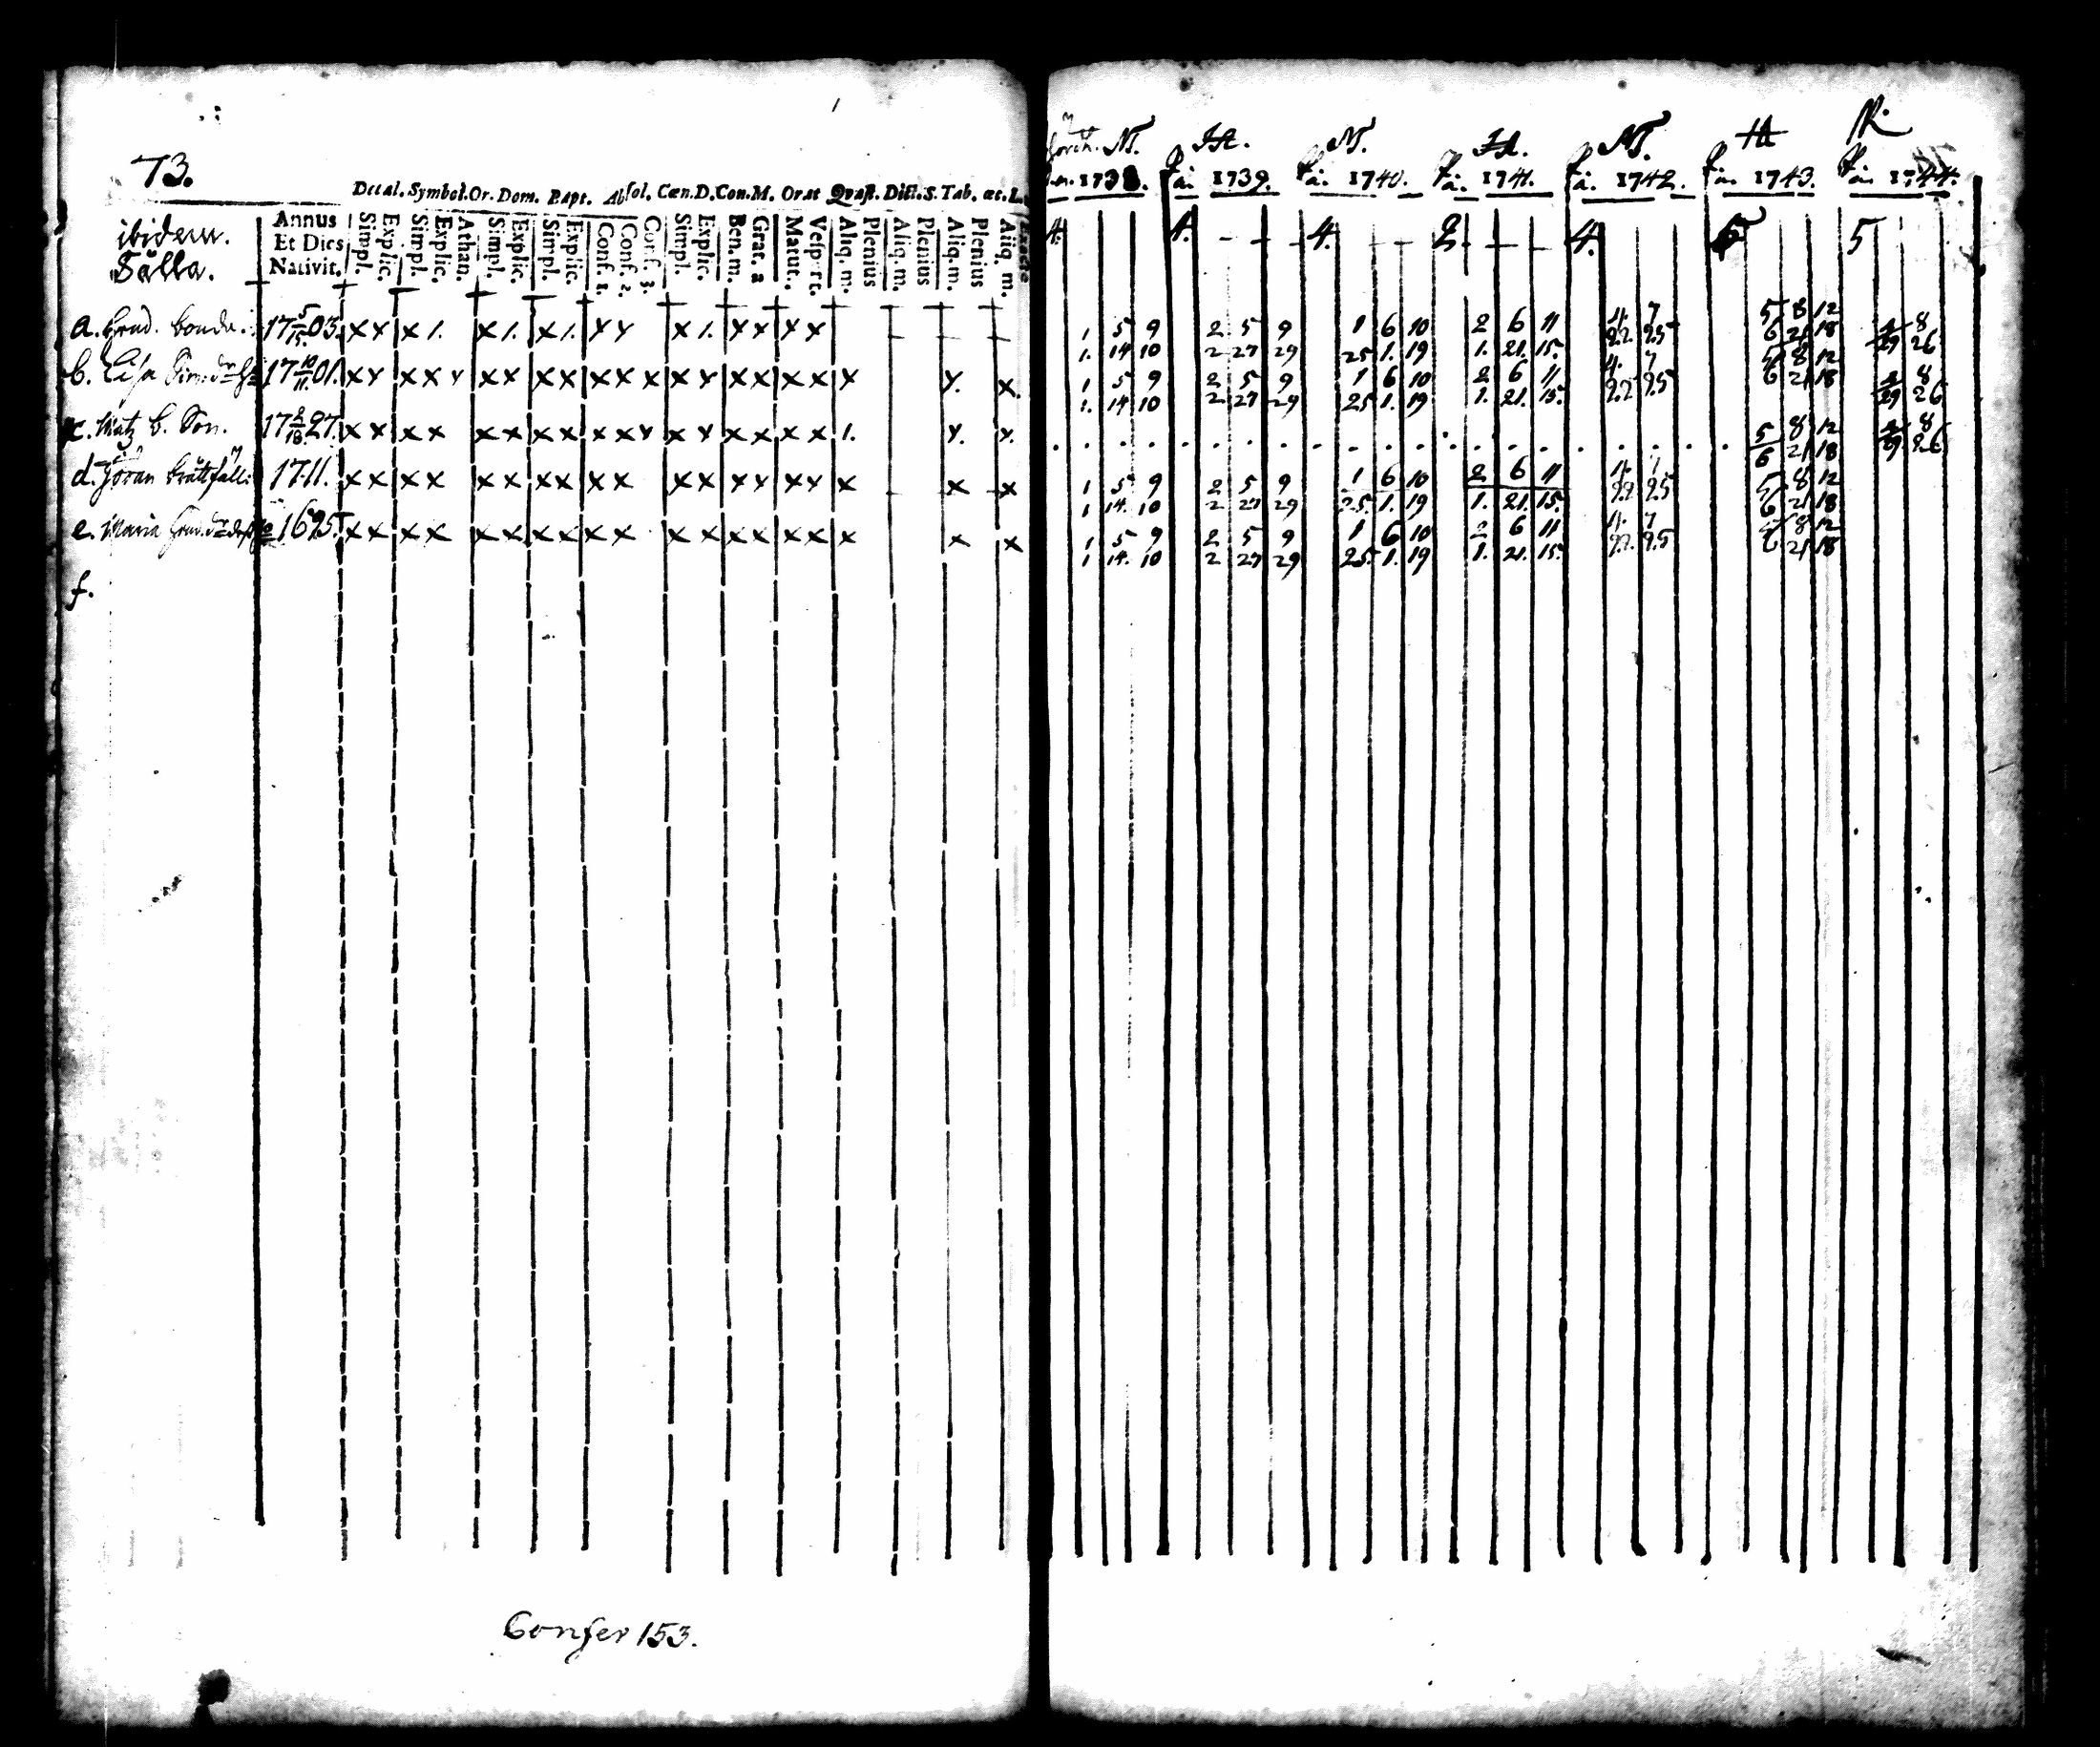 73.
Decal. Symbol. Or. Dom. Bapt. Absol. Cœn. D. Con. M. Orat Quæst. Dict. S. Tab. œc.
ibidem.
Sålla.
Annus
Et Dies
Nativit.
Simpl. Explic. Simpl. Explic. Athan. Simpl. Explic. Simpl. Explic. Conf. 1. Conf. 2. Conf. 3. Simpl. Explic. Ben. m. Grat. a Matut. Vespert. Aliq. m. Plenius Aliq. m. Plenius Aliq. m. Plenius Aliq. m.
N. H. N. H. N. H R.
1738. 1739. 1740. 1741. 1742. 1743. 1744.
4. 4. 4. 2 4. 5 5
a. bonde. 17 5/15 03. x x x 1. x 1. x 1. x x x 1. x x x x
1 5 9 2 5 9 1 6 10 2 6 11 4. 7 5 8 12 8
1. 14 10 2 27 29 25 1. 19 1. 21. 15. 22 25 6 21 18 29 26
b. Lisa 17 10/11 01. x x x x x x x x x x x x x x x x x x x x x.
1 5 9 2 5 9 1 6 10 2 6 11 4. 7 5 8 12 8
1. 14 10 2 27 29 25 1. 19 1. 21. 15. 22 25 6 21 18 29 26
c. Matz b. Son. 17 2/18 27. x x x x x x x x x x x x x x x x x 1. x. x.
5 8 12 8
6 21 18 29 26
d. Jöran 1711. x x x x x x x x x x x x x x x x x x x
1 5 9 2 5 9 1 6 10 2 6 11 4. 7 5 8 12
1 14. 10 2 27 29 25. 1. 19 1. 21. 15. 22 25 6 21 18
e. Maria 1695. x x x x x x x x x x x x x x x x x x x
1 5 9 2 5 9 1 6 10 2 6 11 4. 7 5 8 12
1 14. 10 2 27 29 25. 1. 19 1. 21. 15. 22. 25 6 21 18
f.
Confer 153.